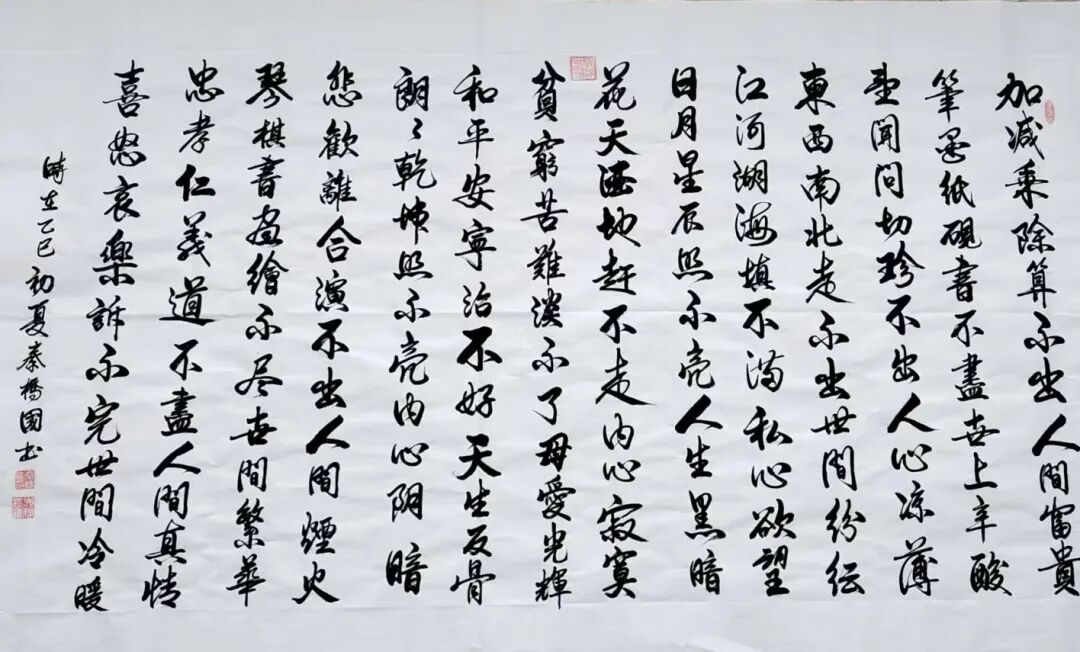 加减乘除算不出人间富貴
筆墨紙硯書不盡世上辛酸
望聞问切珍不出人心凉薄
東西南北走不出世間纷纭
江河湖海填不满私心欲望
日月星辰照不亮人生黑暗
花天酒地赶不走内心寂寞
貧窮苦難淡不了母愛光輝
和平安寧治不好天生反骨
朗々乾坤照不亮内心阴暗
悲歡離合演不出人間煙火
琴棋書画繪不尽世間繁華
忠孝仁義道不盡人間真情
喜怒哀樂訴不完世間冷暖
時在乙巳初夏秦橋國书